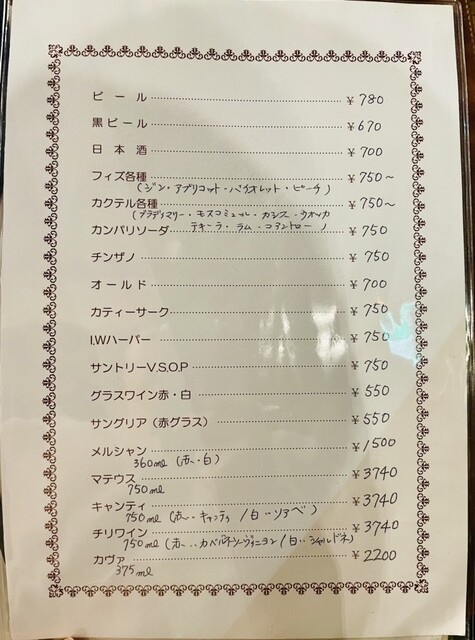 ビール ¥780
黒ビール ¥670
日本酒 ¥700
フィズ各種 ¥750～
(ジン・アプリコット・バイオレット・ピーチ)
カクテル各種 ¥750～
(ブラディマリー・モスコミュール・カシス・ウオッカ
テキーラ・ラム・コアントロー)
カンパリソーダ ¥750
チンザノ ¥750
オールド ¥700
カティーサーク ¥750
I.Wハーパー ¥750
サントリーV.S.O.P ¥750
グラスワイン赤・白 ¥550
サングリア（赤グラス） ¥550
メルシャン ¥1500
360ml (赤・白)
マテウス ¥3740
750ml
キャンティ ¥3740
750ml (赤‥キャンティ / 白‥ソアベ)
チリワイン ¥3740
750ml (赤‥カベルネソーヴィニヨン / 白‥シャルドネ)
カヴァ ¥2200
375ml